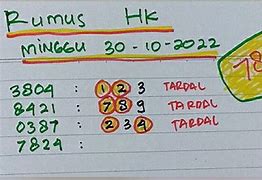 Rumus HK
MINGGU 30-10-2022
3804 : 1 2 3 TARDAL
8421 : 7 8 9 TARDAL
0387 : 2 3 4 TARDAL
7824 :